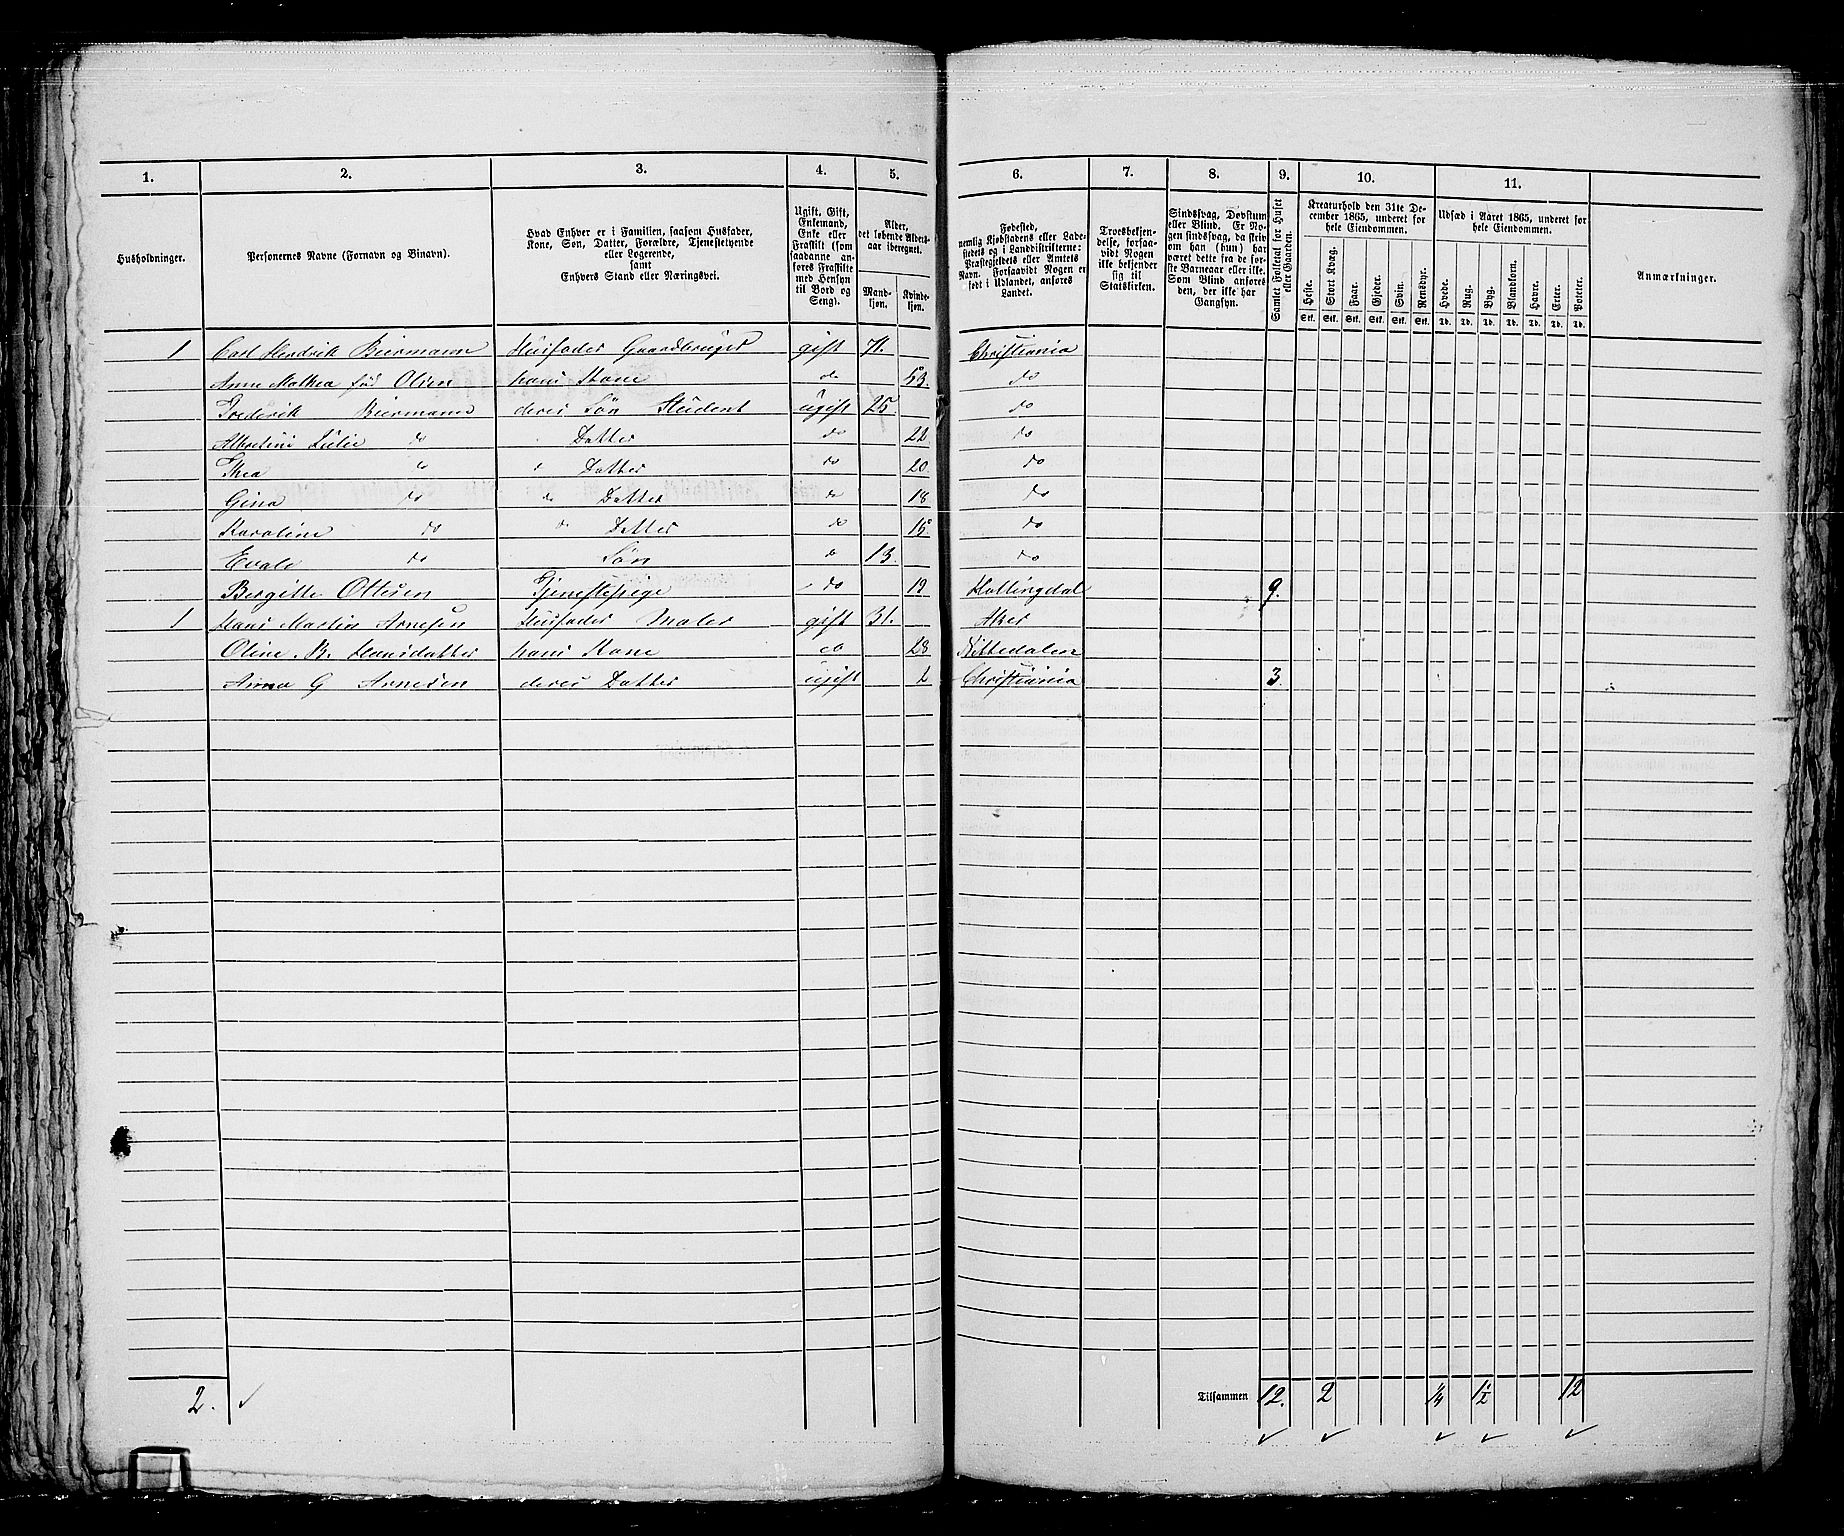 1. 2. 3. 4. 5. 6. 7. 8. 9. 10. 11.
Husholdninger.
Personernes Navne (Fornavn og Binavn).
Hvad Enhver er i Familien, saasom Husfader,
Kone, Søn, Datter, Forældre, Tjenestetyende
eller Logerende,
samt
Enhvers Stand eller Næringsvei.
Ugift, Gift,
Enkemand,
Enke eller
Fraskilt (som
saadanne an-
føres Fraskilte
med Hensyn
til Bord og
Seng).
Alder,
det løbende Alders-
aar iberegnet.
Mand-
kjøn.
Kvinde-
kjøn.
Fødested,
nemlig Kjøbstadens eller Lade-
stedets og i Landdistrikterne:
Præstegjeldets eller Amtets
Navn. Forsaavidt Nogen er
født i Udlandet, anføres
Landet.
Troesbekjen-
delse, forsaa-
vidt Nogen
ikke bekjender
sig til
Statskirken.
Sindssvag, Døvstum
eller Blind. Er No-
gen sindssvag, da skriv
om han (hun) har
været dette fra de før-
ste Barneaar eller ikke.
Som Blind anføres
den, der ikke har
Gangsyn.
Samlet Folketal for Huset
eller Gaarden.
Kreaturhold den 31te De-
cember 1865, underet for
hele Eiendommen.
Heste. Stort Kvæg. Faar. Gjeder. Svin. Rensdyr.
Stk. Stk. Stk. Stk. Stk. Stk.
Udsæd i Aaret 1865, underet for
hele Eiendommen.
Hvede. Rug. Byg. Blandkorn. Havre. Erter. Poteter.
Td. Td. Td. Td. Td. Td. Td.
Anmærkninger.
1 Carl Hendrik Biermann Husfader Gaardbruger gift 71. Christiania
Anne Mathea fød Olsen hans Kone do 53. do
Frederik Biermann deres Søn Student ugift 25 do
Albertine Julie do Datter do 22 do
Thea do Datter do 20. do
Gina do do Datter do 18 do
Karoline do do Datter do 15. do
Evald do Søn do 13. do
Bergitte Ottesen Tjenestepige do 19 Hallingdal 9.
1 Hans Martin Arnesen Husfader Maler gift 31. Aker
Oline B. Hansdatter hans Kone do 28 Nittedalen
Anna G Arnesen deres Datter ugift 2 Christiania 3.
2. ✓ Tilsammen 12. 2 1/4 1 1/2 12
✓ ✓ ✓ ✓ ✓